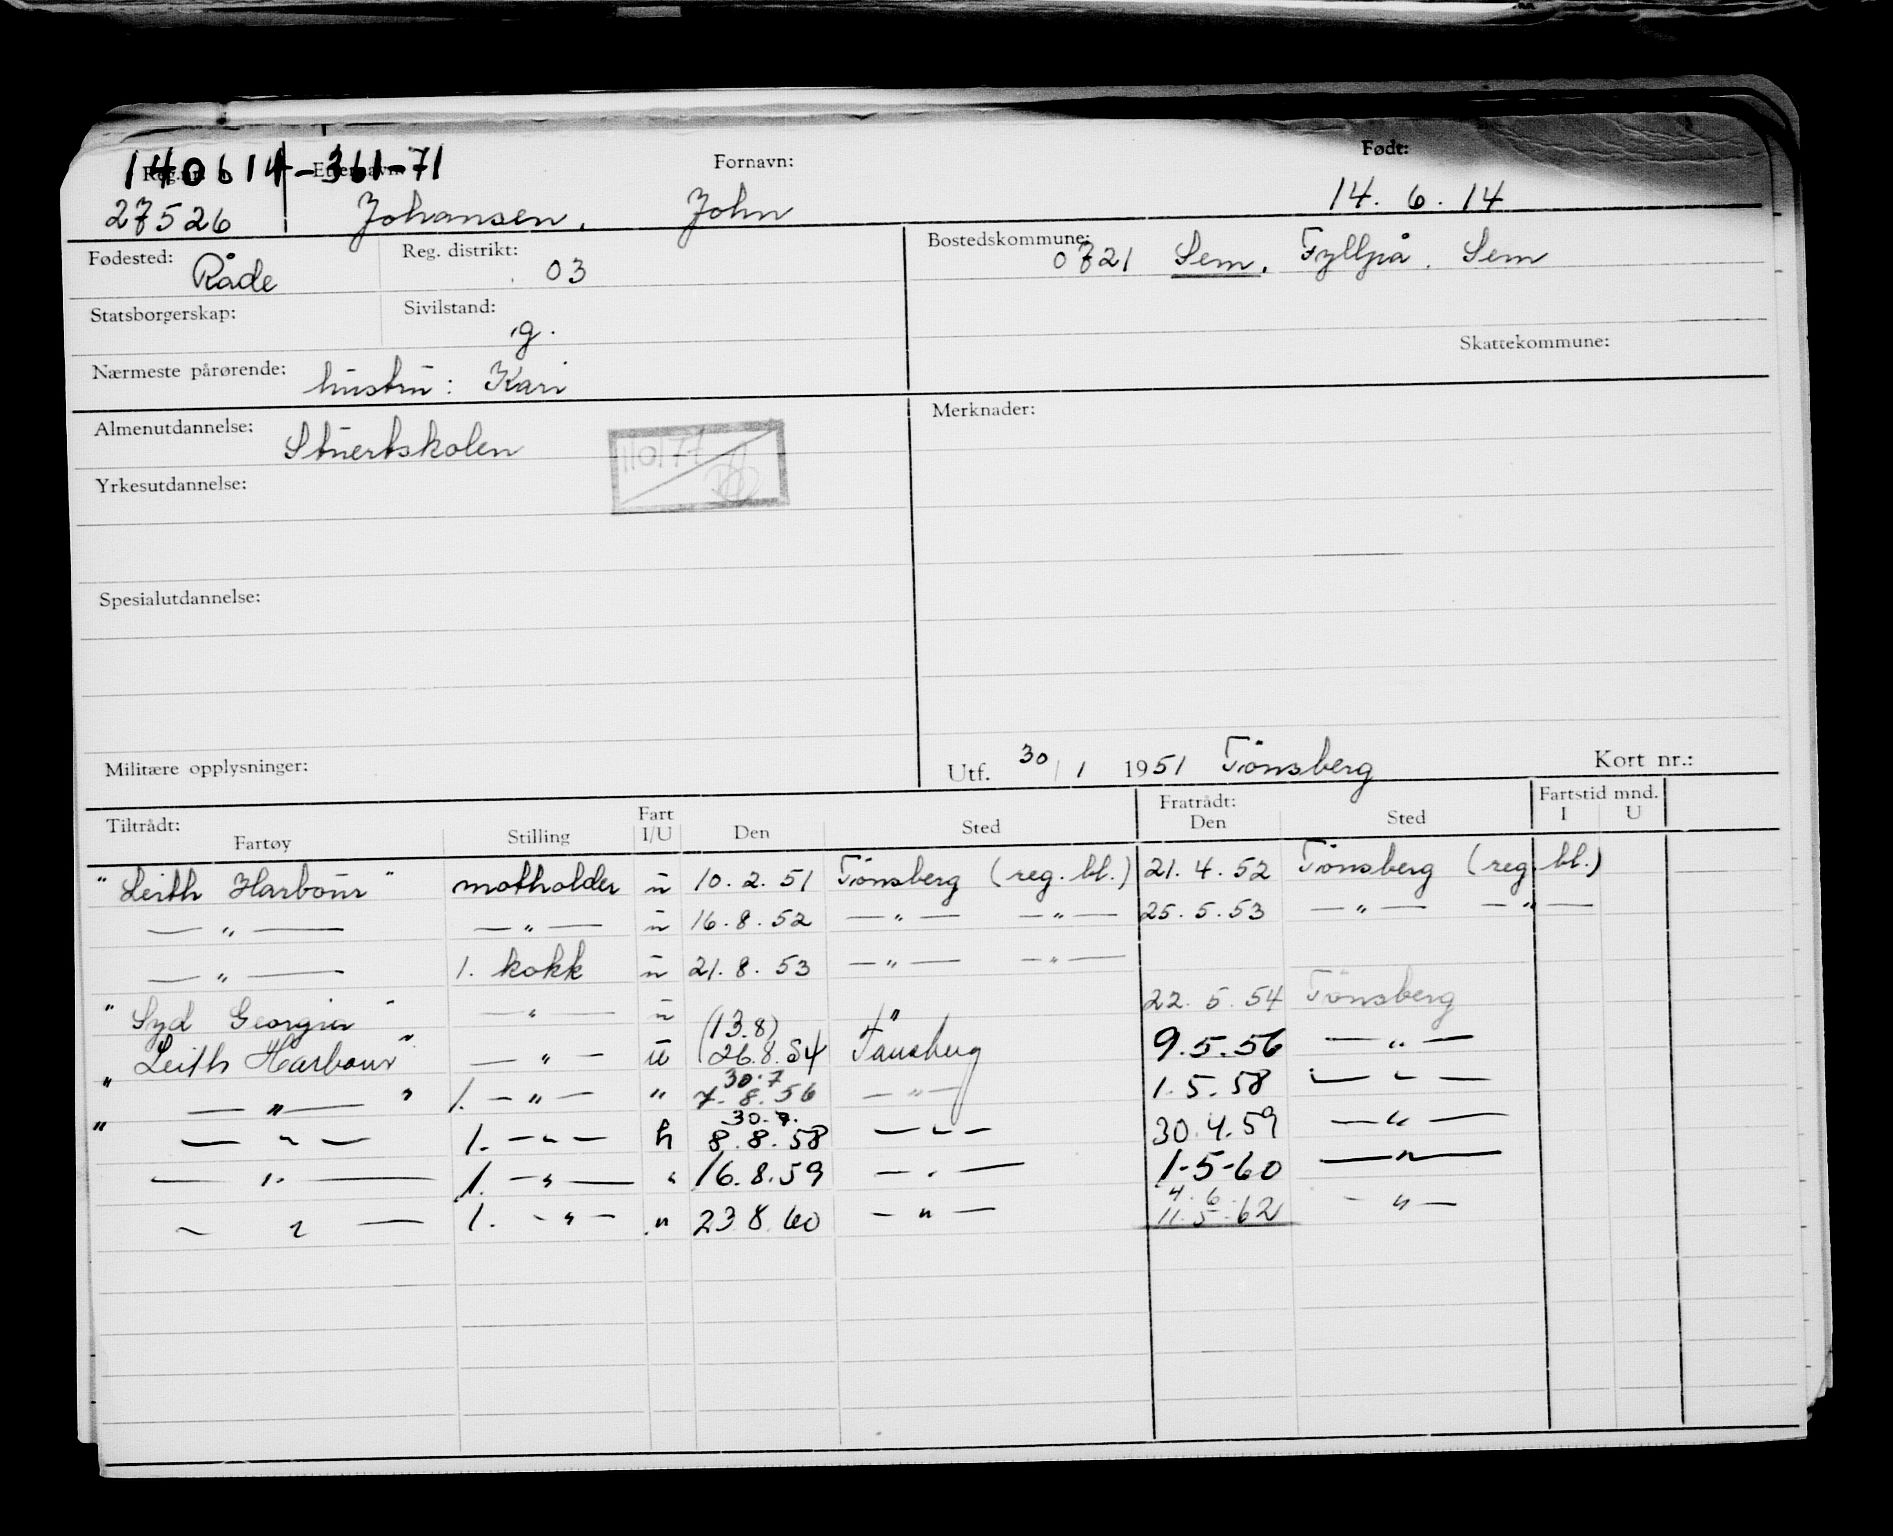 140614-361-71
Reg.nr. Etternavn: Fornavn: Født:
27526 Johansen, John 14. 6. 14
Fødested: Råde Reg. distrikt: 03 Bostedskommune: 0721 Sem. Sem
Statsborgerskap: Sivilstand: g.
Skattekommune:
Nærmeste pårørende: hustru: Kari
Almenutdannelse: Stuertskolen Merknader:
Yrkesutdannelse:
Spesialutdannelse:
Militære opplysninger: Utf. 30/1 1951 Tönsberg Kort nr.:
Tiltrådt: Fart Fratrådt: Fartstid mnd.
Fartøy Stilling I/U Den Sted Den Sted I U
"Leith Harbour" motholder u 10. 2. 51 Tönsberg (reg. bl.) 21. 4. 52 Tönsberg (reg. bl.)
— " — — " — u 16. 8. 52 — " — — " — 25. 5. 53 — " — — " —
— " — 1. kokk u 21. 8. 53 — " — — " —
"Syd Georgia" — " — u (13.8) " 22. 5. 54 Tönsberg
"Leith Harbour" — " — u (26.8.54 Tønsberg 9.5.56 — " —
30.7
" — " — " 1. — " — " 7. 8. 56 — " — 1. 5. 58 — " —
" — " — 1. — " — 8.8.58 — " — 30.4.59 — " —
— " — 1. — " — " 16.8.59 — " — 1-5-60 — " —
4. 6.
— " — 1. — " — " 23.8.60 — " — 11.5.62 — " —